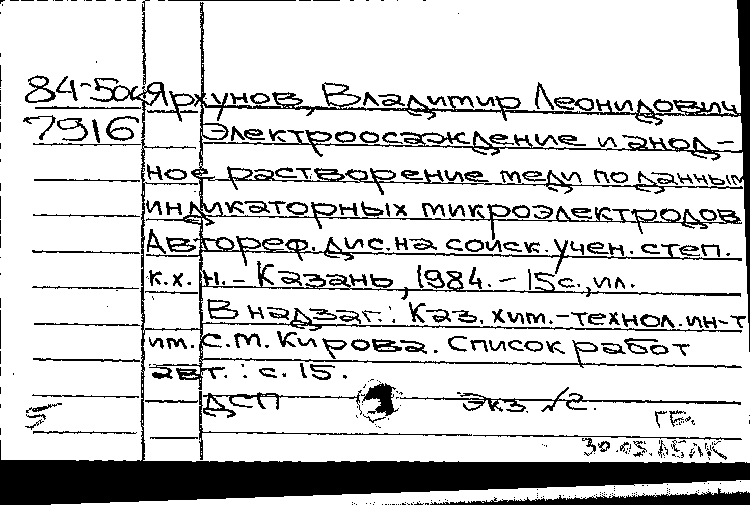 84-50к Ярхунов, Владимир Леонидович
7916 Электроосаждение и анод-
ное растворение меди по данным
индикаторных микроэлектродов
Автореф. дис. на соиск. учен. степ.
к.х.н. - Казань, 1984. - 15 с., ил.
В надзаг.: Каз. хим.-технол. ин-т
им. С.М. Кирова. Список работ
авт.: с. 15.
ДСП Экз. №2.
5 ГВ.
30.05.85 ЛК